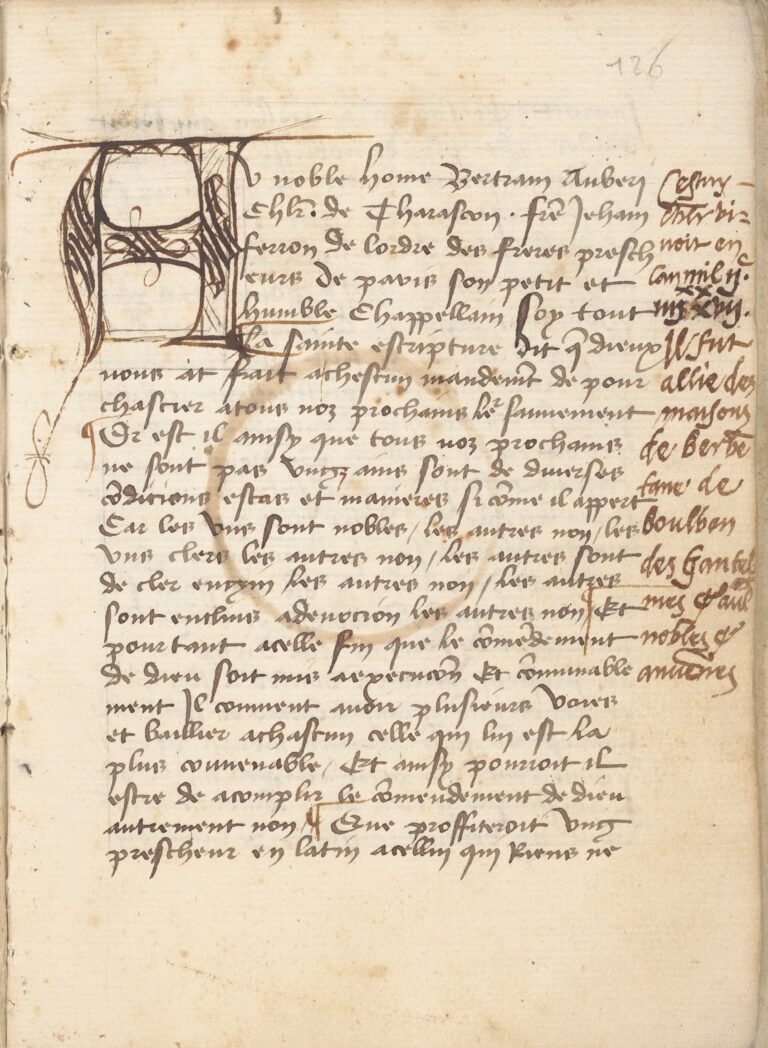 126
Au noble home Bertram Auberi
Chlr. de Tharascon . Fre Jeham
ferron de lordre des freres presch
eurs de paris son petit et
humble Chappellain Soy tout
La sainte escripture dit q̄ dieux
nous at fait a chescun mandemt de pour
chascier a tous noz prochains le sauuement
Or est il ainsy que tous noz prochains
ne sont pas vngz ains sont de diuerses
cōdicions estas et manieres si cōme il appert
Car les vns sont nobles / les autres non / les
vns clers les autres non / les autres sont
de cler engin / les autres non / les autres
sont enclins a deuocion les autres non / Et
pourtant a celle fin que le cōmēdement
de dieu soit mis a execucōn Et conuinable
ment Il conuient auoir plusieurs voies
et baillier a chascun celle qui lui est la
plus conuenable / Et ainsy pourroit il
estre de acomplir le cōmendement de dieu
autrement non / Que proffiteroit vng
prescheur en latin a cellui qui Riens ne
Cestuy
viuoit en
lan mil ij c
iiij xx xvij.
Il fut
allie des
maisons
de berbē
tane de
boulbon
des gantel
mes & aul
nobles &